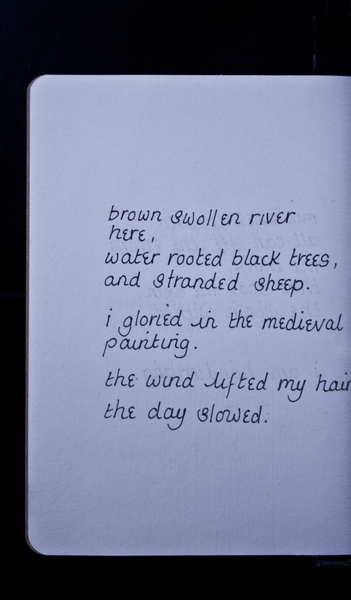 brown swollen river
here,
water rooted black trees,
and stranded sheep.
i gloried in the medieval
painting.
the wind lifted my hair
the day slowed.